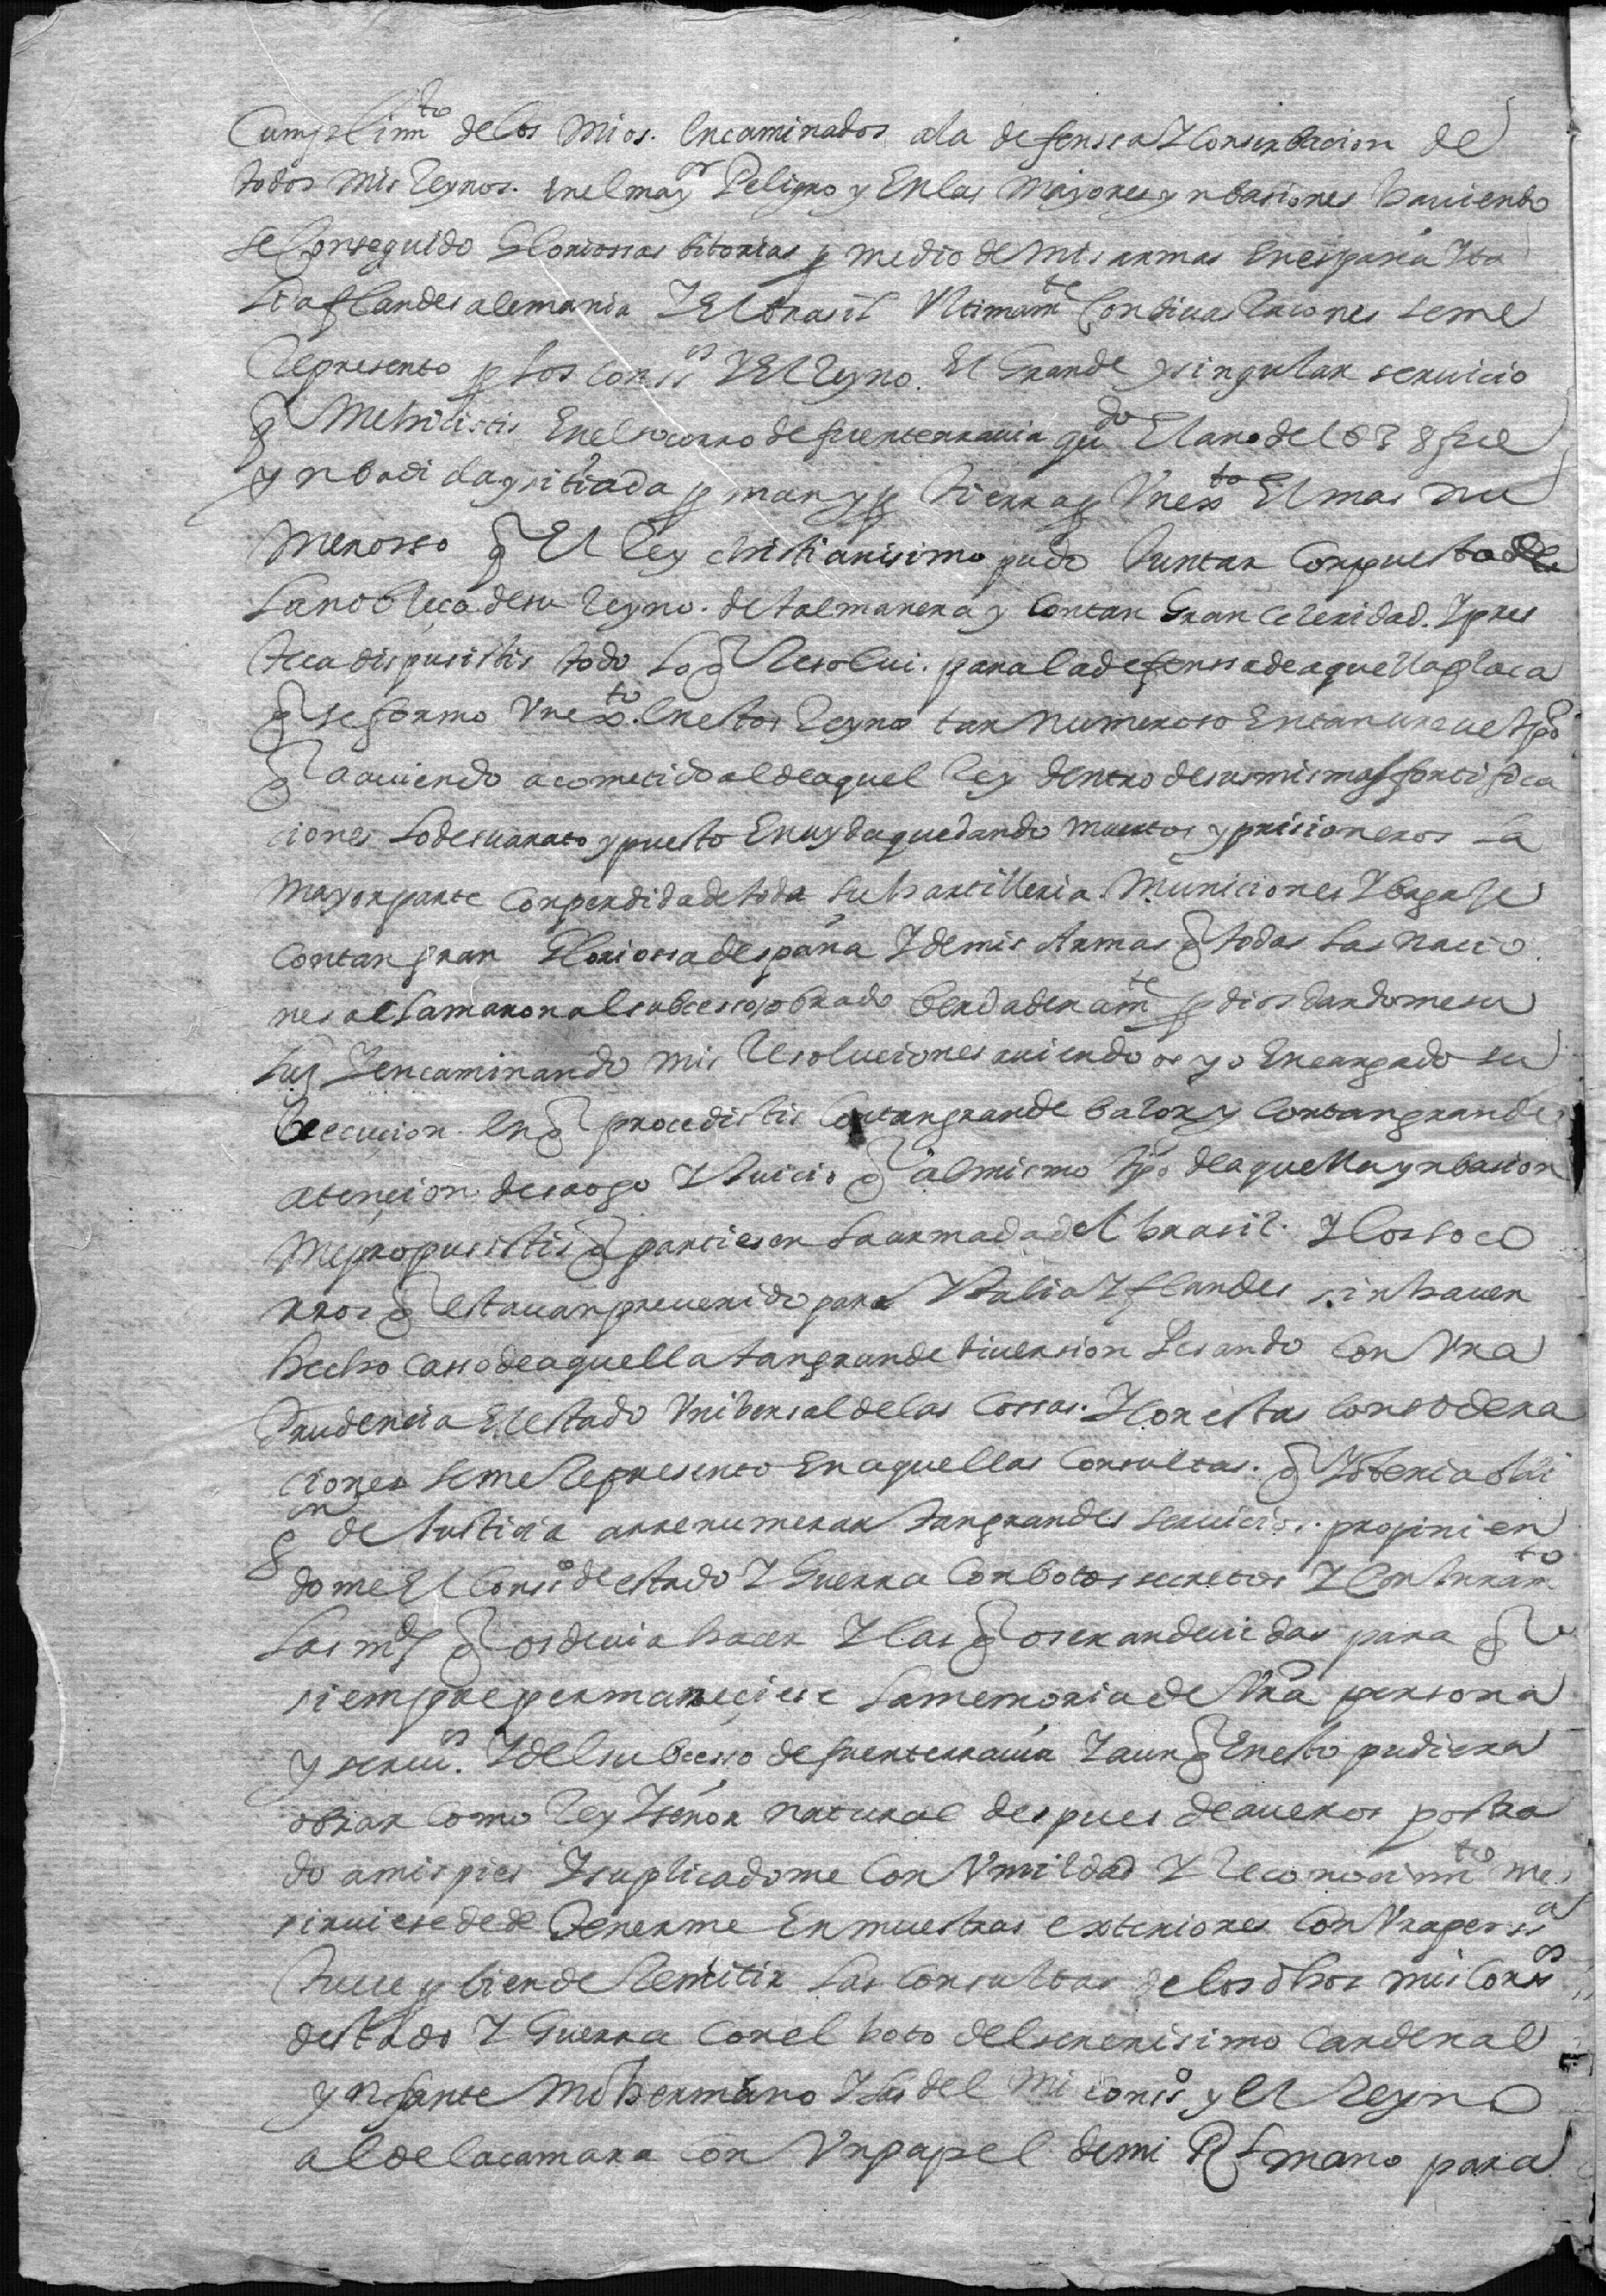 Cumplim^to de los mios. encaminados a la defenssa Y Conserbacion de
todos mis Reynos. en el may^or Peligro y En las mayores ynbasiones haviendo
se Conseguido Gloriossas bitorias p medio de mis armas En españa Yta
lia flandes alemania Y El brasil Ultimam^te Con diuas raciones se me
Represento p los Cons^os Y El Reyno. El Grande y singular seruicio
q Me hicistis En el socorro de fuenterrauia qu^do El ano de 1638 fue
ynbadida y sitiada p mar y p tierra p Un ex^to El mas nu
merosso q El Rey christianisimo pudo Juntar Conpuesto de
La nobleça de su Reyno. de tal manera y Con tan Gran Celeridad. Y pres
teça dispusistis todo Lo q Resolui. para la defenssa de aquella plaça
q se formo Un ex^to. En estos Reynos tan numeroso En tan breue tpo
q auiendo acometido al de aquel Rey dentro de sus mismas fortifica
ciones Lo desuarato y puesto En uyda quedando muertos y prisioneros La
mayor parte Con perdida de toda su hartilleria. Municiones Y bagaje
Con tan gran Gloriossa de españa Y de mis Armas q todas Las nacio
nes aclamaron al subcesso obrado berdaderam^te p dios dandome su
Luz Y encaminando mis Resoluciones auiendo os yo Encargado su
execuçion. En q procedistis Con tan grande balor y Con tan grande
atençion desaogo Y Juicio q al mismo tpo de aquella ynbasion
Me propusistis q partiesen La armada del brasil. Y los soco
rros q estauan preuenido para Ytalia Y flandes sin hauer
hecho casso de aquella tan grande diuersion Pesando Con Vra
Prudencia El estado Vnibersal de las Cossas. Y Con estas Considera
ciones se me Represento En aquellas Consultas. q Yo tenia obli
g^on de Justicia a rrenumerar tan grandes seruicios. propinien
dome El Cons^o de estado Y Guerra Con botos secretos Y Con Juram^to
Las mds q os deuia hacer Y las q os eran deuidas para q
siempre permaneçiese La memoria de Vra persona
y seru^os. Y del subcesso de fuenterrauia Y aun q En esto pudiera
obrar Como Rey Y señor natural despues de aueros postra
do a mis pies Y suplicadome Con Vmildad Y Reconocim^to me
siruiese de de tenerme En muestras exteriores Con Vra pers^a
Tuue p bien de Remitir Las Consultas de los dhos mis Cons^os
de stado Y Guerra Con el boto del serenisimo Cardenal
ynfante Mi hermano Y las del Mi Cons^o y El Reyno
al de la camara Con Vn papel de mi Rl mano para